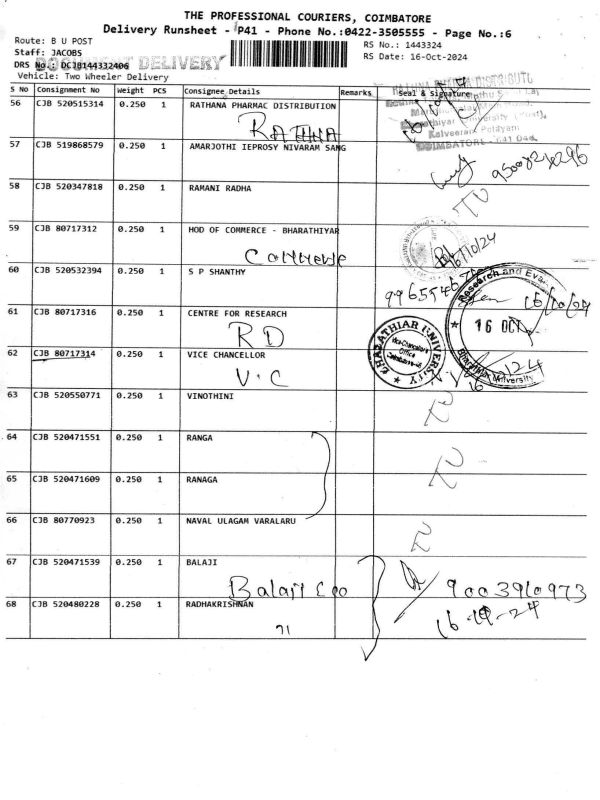 THE PROFESSIONAL COURIERS, COIMBATORE
Delivery Runsheet - P41 - Phone No.:0422-3505555 - Page No.:6
Route: B U POST
RS No.: 1443324
Staff: JACOBS
RS Date: 16-Oct-2024
DRS No.: DCJB144332406
DOCUMENT DELIVERY
Vehicle: Two Wheeler Delivery
S No Consignment No Weight PCS Consignee Details Remarks Seal & Signature
56 CJB 520515314 0.250 1 RATHANA PHARMAC DISTRIBUTION
RATHNA
Kalveeram Palayam
57 CJB 519868579 0.250 1 AMARJOTHI IEPROSY NIVARAM SANG
58 CJB 520347818 0.250 1 RAMANI RADHA
59 CJB 80717312 0.250 1 HOD OF COMMERCE - BHARATHIYAR
60 CJB 520532394 0.250 1 S P SHANTHY
61 CJB 80717316 0.250 1 CENTRE FOR RESEARCH
RD
Research and Eva
16 OCT
Bharathiar University
62 CJB 80717314 0.250 1 VICE CHANCELLOR
V.C
BHARATHIAR UNIVERSITY
Vice-Chancellor's
Office
63 CJB 520550771 0.250 1 VINOTHINI
64 CJB 520471551 0.250 1 RANGA
65 CJB 520471609 0.250 1 RANAGA
66 CJB 80770923 0.250 1 NAVAL ULAGAM VARALARU
67 CJB 520471539 0.250 1 BALAJI
Balaji
9003910973
68 CJB 520480228 0.250 1 RADHAKRISHNAN
16-10-24